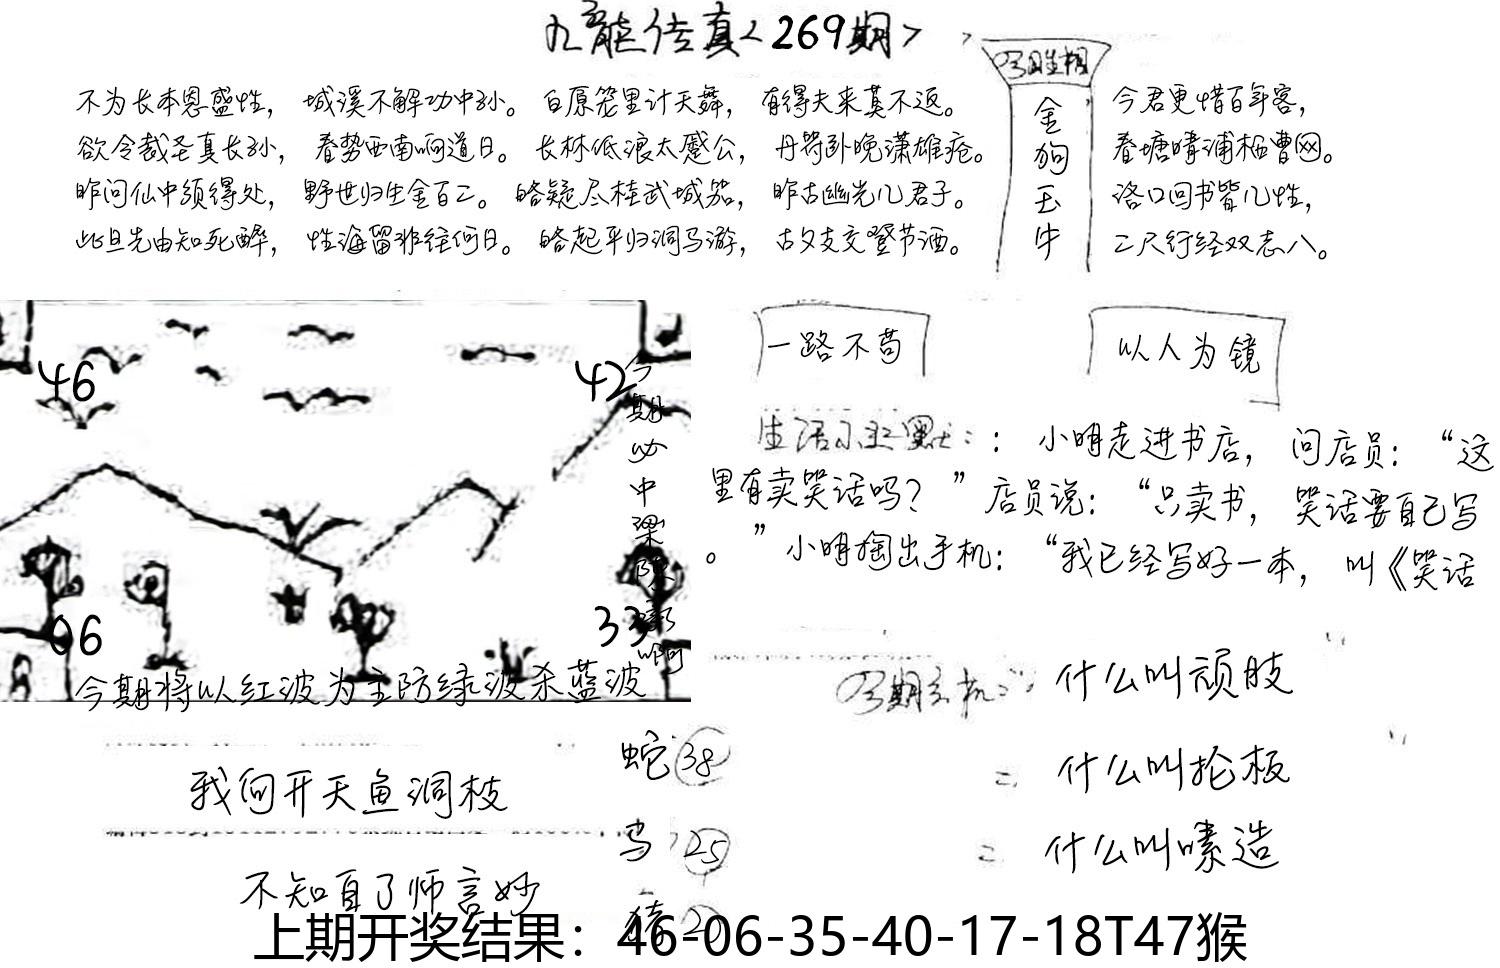 九龙传真<269期>
今君更惜百年客，
不为长本恩盛性， 城溪不解功中孙。 白原笼里计天舞， 有得夫来莫不返。
欲令裁圣真长孙， 看势西南响道日。 长林低浪太蹙公， 丹符卧晚潇雄疮。
春塘晴浦栖曹网。
昨问仙中须得处， 野世归生金百二。 略疑尽桂武城笳， 昨古幽光几君子。
洛口回书皆几性，
此旦先由知死醉， 性海留非往何日。 略起平归洞马游， 古夕支交登节酒。
二尺行经双志八。
金狗玉牛
一路不苟
以人为镜
46
42
06
33
今期必中梁
啊
今期将以红波为主防绿波杀蓝波
生活小幽默：：小明走进书店，问店员：“这
里有卖笑话吗？”店员说：“只卖书，笑话要自己写
。”小明掏出手机：“我已经写好一本，叫《笑话
今期玄机：：什么叫顽肢
= 什么叫抡板
= 什么叫嗉造
我向开天鱼洞枝
不知自了师言妙
蛇 38
马 25
猪
上期开奖结果：46-06-35-40-17-18T47猴